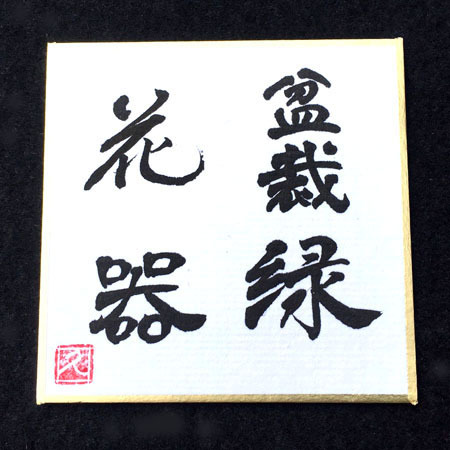 盆栽緑
花器